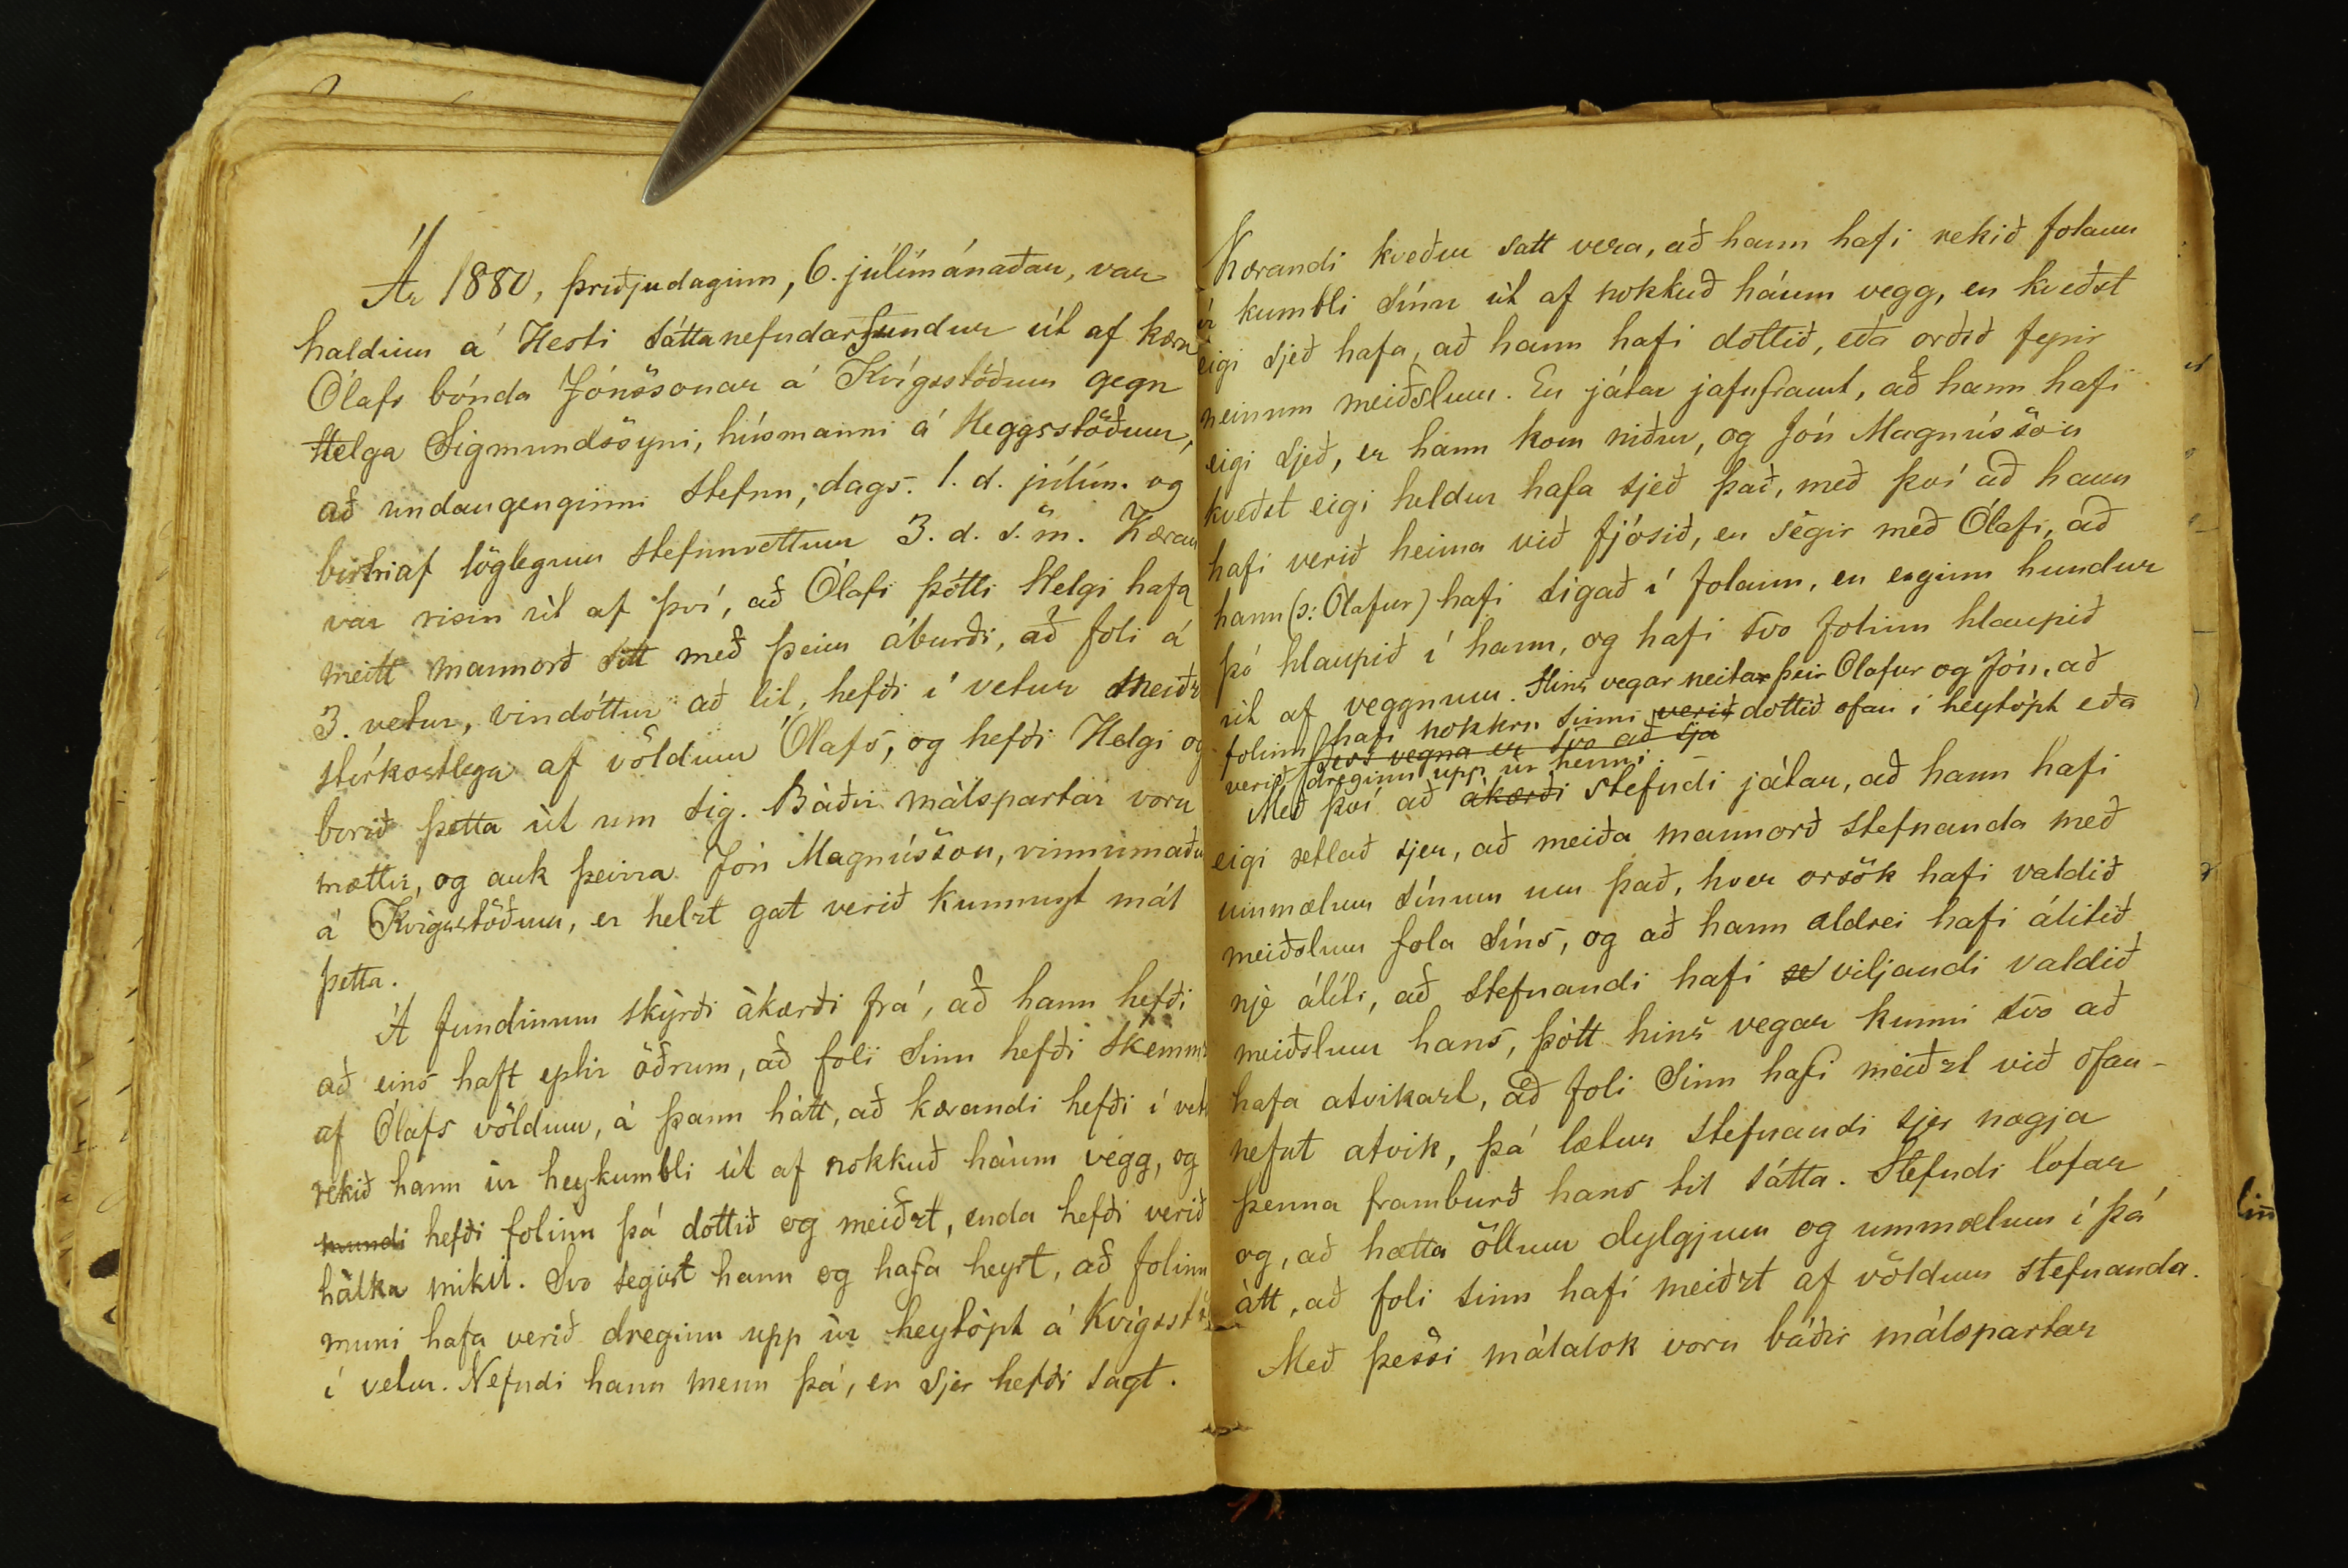 Ár 1880, þriðjudaginn, 6. júlímánaðar, var
haldinn á Hesti sáttanefndarfundur út af kæru
Ólafs bónda Jónssonar á Kvígsstöðum gegn
Helga Sigmundssyni, húsmanni á Heggsstöðum,
að undangenginni stefnu, dags. 1. d. júlím. og
birtri af löglegum stefnuvottum 3. d. s. m. Kæran
var risin út af því, að Ólafi þótti Helgi hafa
meitt mannorð sitt með þeim áburði, að foli á
3. vetur, vindóttur að lit, hefði í vetur meiðz
stórkostlega af völdum Ólafs, og hefði Helgi og
borið þetta út um sig. Báðir málspartar voru
mættir, og auk þeirra Jón Magnússon, vinnumaðu
á Kvígsstöðum, er helzt gat verið kunnugt mál
þetta.
Á fundinum skýrði ákærði frá, að hann hefði
að eins haft eptir öðrum, að foli sinn hefði skemmz
af Ólafs völdum, á þann hátt, að kærandi hefði í vet
rekið hann úr heykumbli út af nokkuð háum vegg, og
mundi hefði folinn þá dottið og meiðzt, enda hefði verið
hálka mikil. Svo segist hann og hafa heyrt, að folinn
muni hafa verið dreginn upp úr heytópt á Kvígsst
í vetur. Nefndi hann menn þá, er sjer hefði sagt.
Kærandi kveður satt vera, að hann hafi rekið folann
úr kumbli sínu út af nokkuð háum vegg, en kveðst
eigi sjeð hafa, að hann hafi dottið, eða orðið fyrir
neinum meiðslum. En játar jafnframt, að hann hafi
eigi sjeð, er hann kom niður, og Jón Magnússon
kveðst eigi heldur hafa sjeð það, með því að hann
hafi verið heima við fjósið, en segir með Ólafi, að
hann (ɔ: Ólafur) hafi sigað í folann, en enginn hundur
þó hlaupið í hann, og hafi svo folinn hlaupið
út af veggnum. Hins vegar neitar þeir Ólafur og Jón, að
folinn hafi nokkru sinni verið dottið ofan í heytópt eða
þess vegna er svo að sjá
verið dreginn upp úr henni. –
Með því að ákærði stefndi játar, að hann hafi
eigi ætlað sjer, að meiða mannorð stefnanda með
ummælum sínum um það, hver orsök hafi valdið
meiðslum fola síns, og að hann aldrei hafi álitið
nje álíti, að stefnandi hafi viljandi valdið
meiðslum hans, þótt hins vegar kunni svo að
hafa atvikazt, að foli sinn hafi meiðzt við ofan-
nefnt atvik, þá lætur stefnandi sjer nægja
þenna framburð hans til sátta. Stefndi lofar
og, að hætta öllum dylgjum og ummælum í þá
átt, að foli sinn hafi meiðzt af völdum stefnanda.
Með þessi málalok voru báðir málspartar